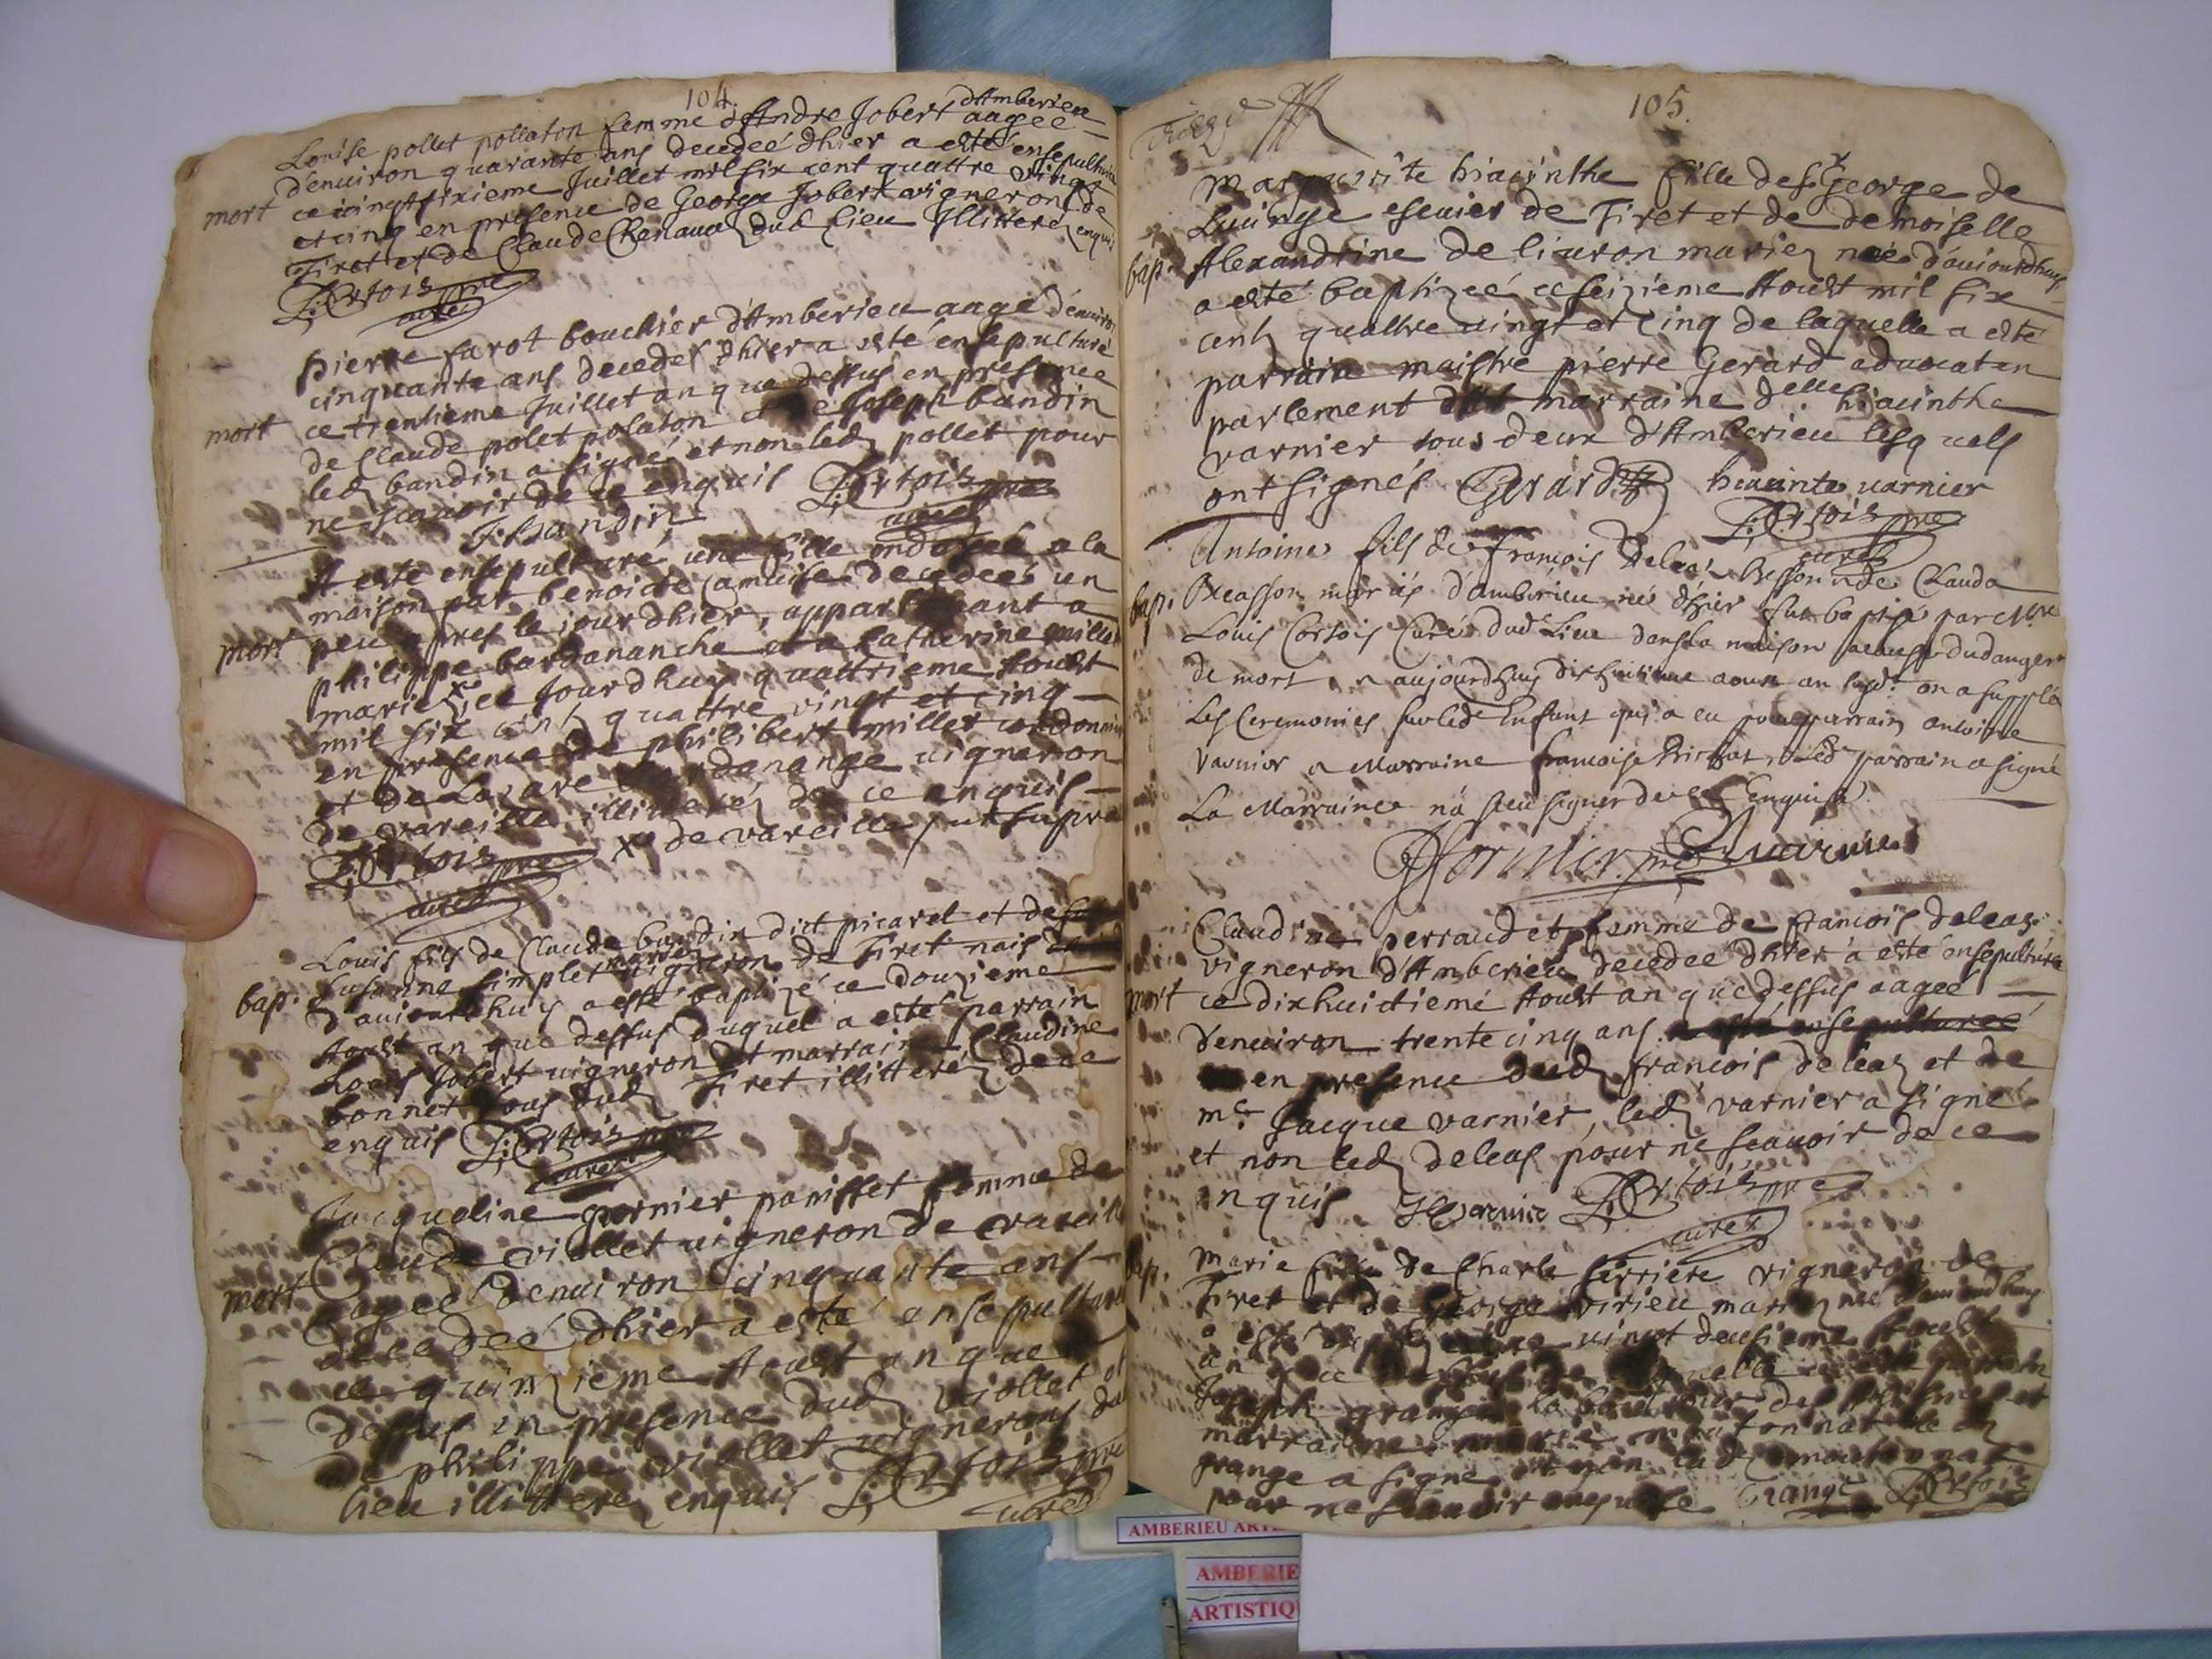 104.
Louise pollet pollaton femme dAndre Jobert dAmberieu aagee
denuiron quarante ans decedeé dhier a esté ensepulturé
mort ce vingtsixieme Juillet mil six cent quattre vingt
et cinq en presence de George Jobert vigneron de
Tiret et de Claude Renaud dud lieu Illitterez enquis
L: Cortois pre
curé
pierre farot bouchier dAmberieu aagé denuiron
cinquante ans decedes dhier a esté ensepulturé
ce trentieme Juillet an que dessus en presence
mort de Claude polet polaton Joseph bandin
led bandin a signé et non led pollet pour
ne scauoir de ce enquis L: Cortois pre
J: bandin curé
A esté ensepulturé une fille ondoyeé a la
maison par benoicte decedeés un
mort peu apres le jour dhier, appartenant a
philippe bardananche et a Catherine millet
mariez, x ce Jourdhuy quattrieme Aoust
mil six cent quattre vingt et cinq
en presence de philibert millet cordonnier
et de Lazare vigneron
de vareille illitterez de ce enquis
L: Cortois pre x de vareille ut supra
curé
Louis fils de Claude bandin dict picaret et de
Susanne simplet mariez vigneron de Tiret nais
bap. d'auiourdhuy a esté baptizé ce douzieme
Aoust an que dessus duquel a esté parrain
Louis Jobert vigneron et marraine Claudine
bonnet tous dud Tiret illitterez de ce
enquis L: Cortois pre
curé
Jacqueline garnier panisset femme de
Claude viollet vigneron de vareille
mort aageé denuiron cinquante ans
decedeé dhier a esté ensepulturé
ce quinzieme Aoust an que
dessus en presence dud viollet et
de philippe viollet vignerons dud
lieu illitterez enquis L: Cortois pre
curé
105.
Marguerite hiacinthe fille de sr George de
Luirieye escuier de Tiret et de demoiselle
bap. Alexandrine de liuron mariez née d'auiourdhuy
a esté baptizeé ce seizieme Aoust mil six
cent quattre vingt et cinq de laquelle a esté
parrain maistre pierre Gerard aduocat en
parlement et marraine delle hiacinthe
varnier tous deux d'Amberieu lesquels
ont signés Gerard hiacinte varnier
L: Cortois pre
curé
Antoine fils de françois Deleaz bresson et de Clauda
bap. Breasson mariés d'amberieu né dhier fut baptisé par Mre
Louis Cortois Curé dud Lieu dans la maison a cause du danger
de mort, et aujourdhuy dix huitieme aoust an susd. on a supplée
Les Ceremonies sur led Enfant qui a eu pour parrain antoine
varnier et Marraine françoise led parrain a signé
La Marraine n'a sceu signer de ce Enquise
pre A varnier
Claudine perraudet femme de francois deleaz
vigneron d'Amberieu decedeé dhier a esté ensepulturé
mort ce dixhuictiemé Aoust an que dessus aageé
denuiron trente cinq ans a esté ensepultureé
en presence dud francois deleaz et de
mr Jacque varnier, led varnier a signé
et non led deleas pour ne scauoir de ce
enquis J varnier L: Cortois pre
curé
bap. Marie fille de Charle ferriere vigneron de
Tiret et de George virieu mariez née d'auiourdhuy
a esté baptizeé ce vingt deusieme Aoust
an que dessus de laquelle a esté parrain
Joseph grange
marraine
grange a signé et non lad
pour ne scauoir enquise Grange L: Cortois
AMBERIEU
AMBERIE
ARTISTIQ